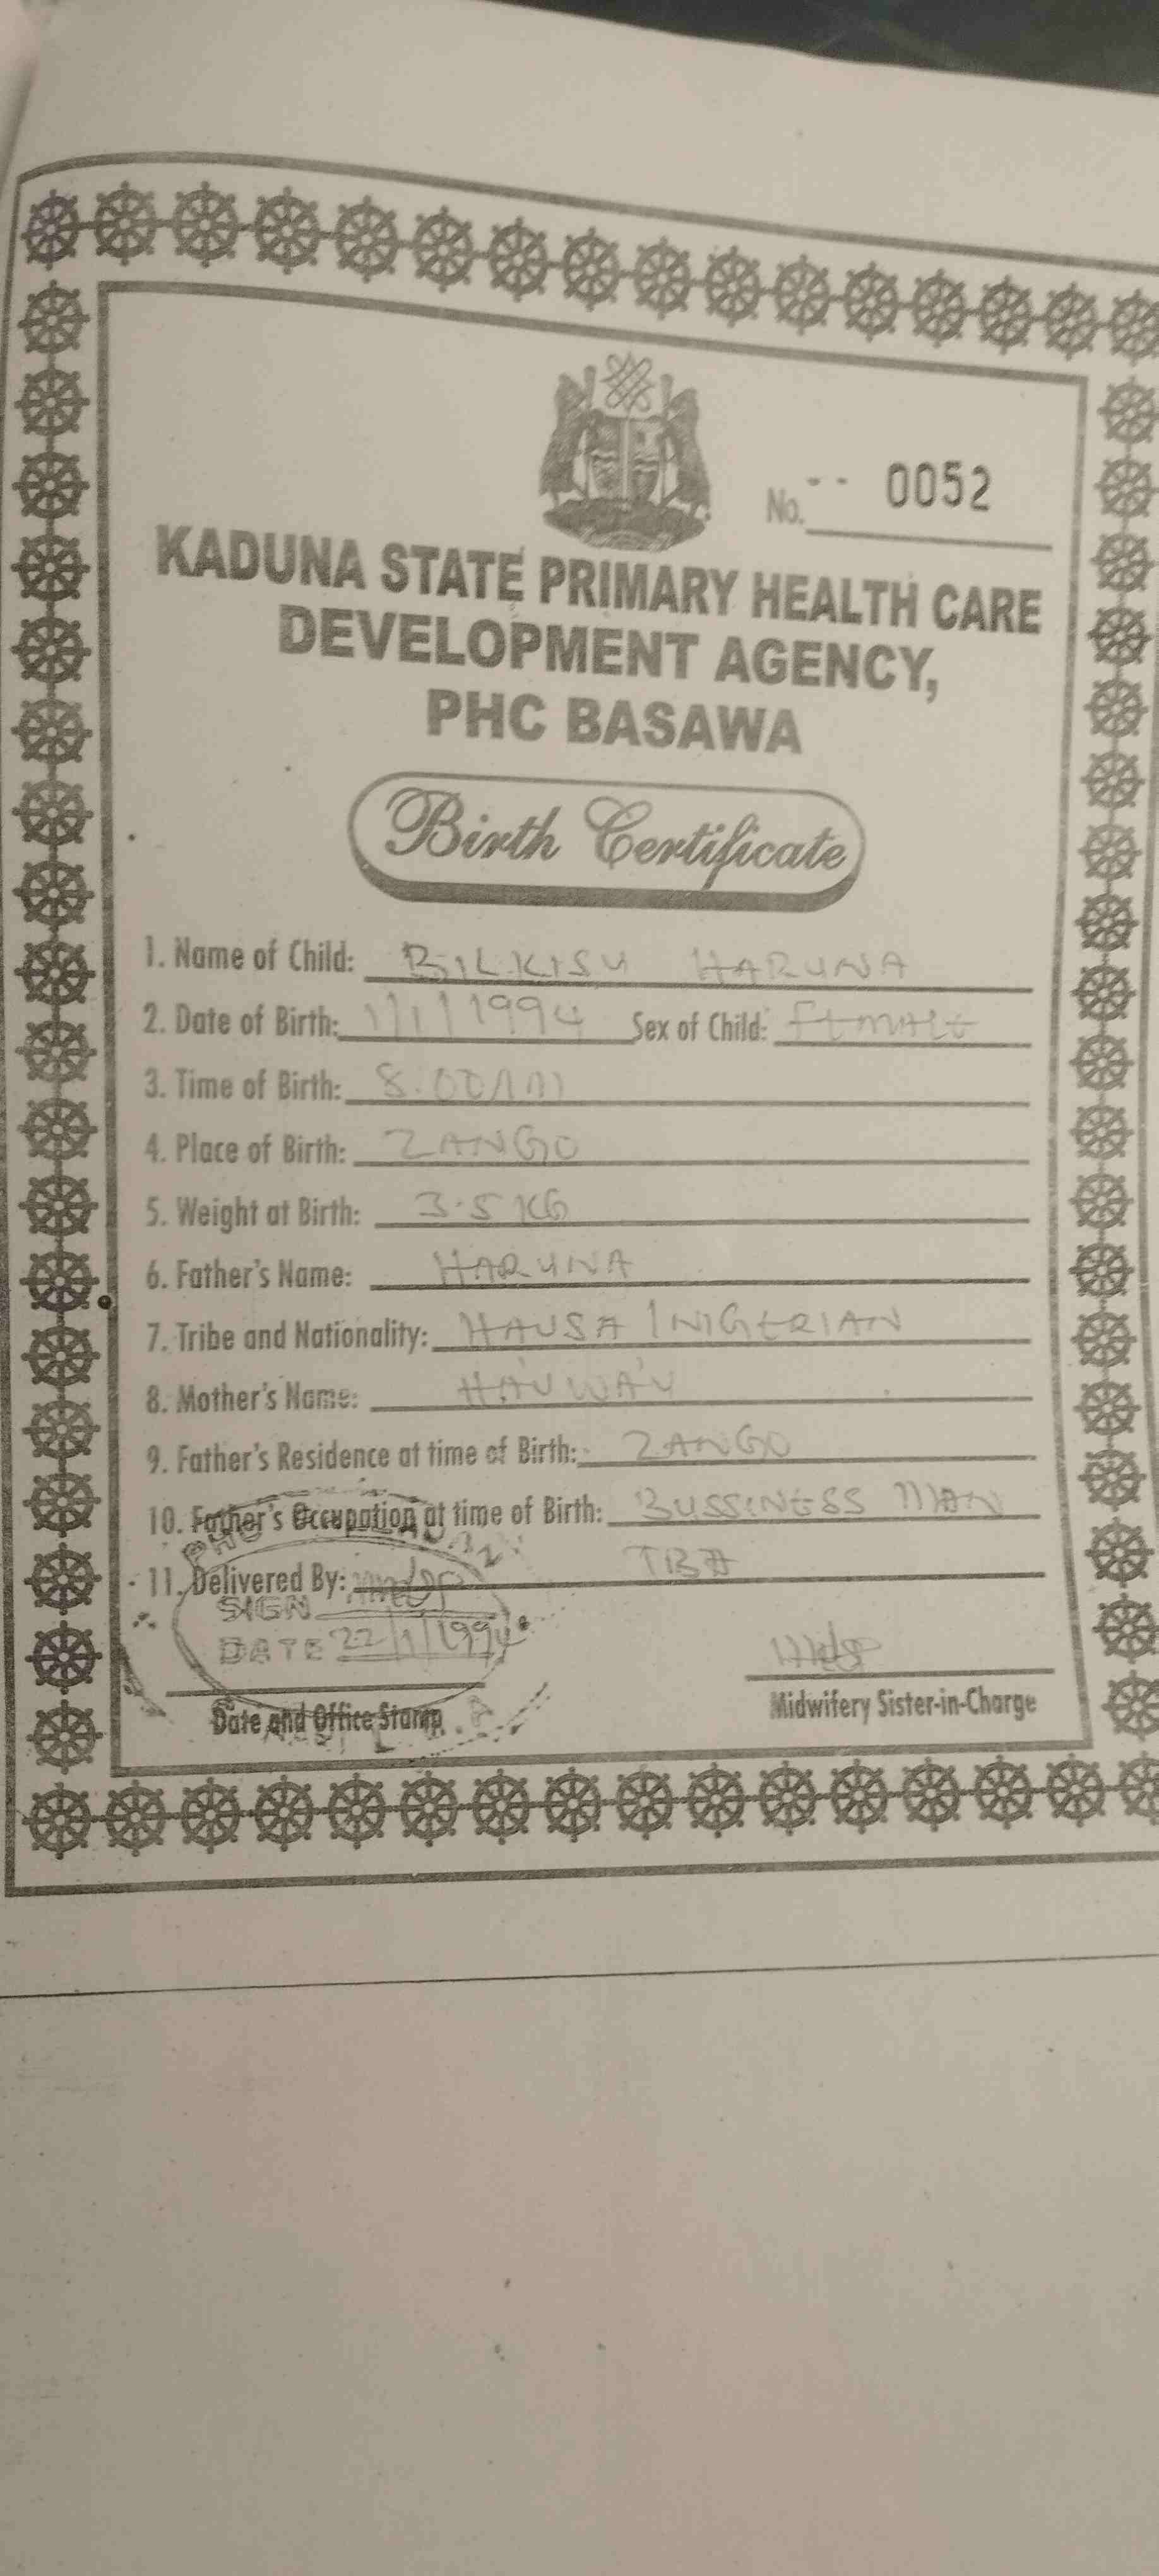 No. -- 0052
KADUNA STATE PRIMARY HEALTH CARE
DEVELOPMENT AGENCY,
PHC BASAWA
Birth Certificate
1. Name of Child: BILKISU HARUNA
2. Date of Birth: 1/1/1994 Sex of Child: female
3. Time of Birth: 8.00AM
4. Place of Birth: ZANGO
5. Weight at Birth: 3.5 KG
6. Father's Name: HARUNA
7. Tribe and Nationality: HAUSA / NIGERIAN
8. Mother's Name: HAUWA'U
9. Father's Residence at time of Birth: ZANGO
10. Father's Occupation at time of Birth: BUSSINESS MAN
11. Delivered By: TBA
PHC
SIGN
DATE 22/1/1994
Date and Office Stamp
Midwifery Sister-in-Charge